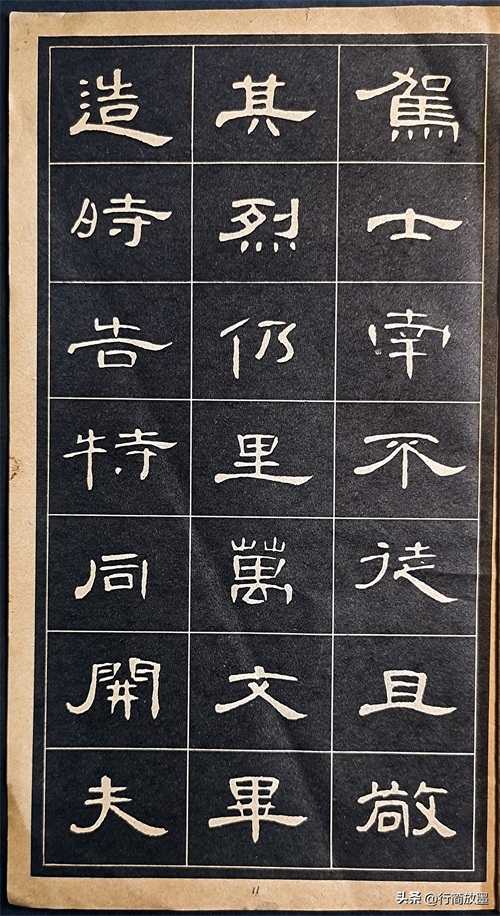 士不徒且敬
其烈仍里萬文畢
造時告特同開夫
11
头条 @行简放墨